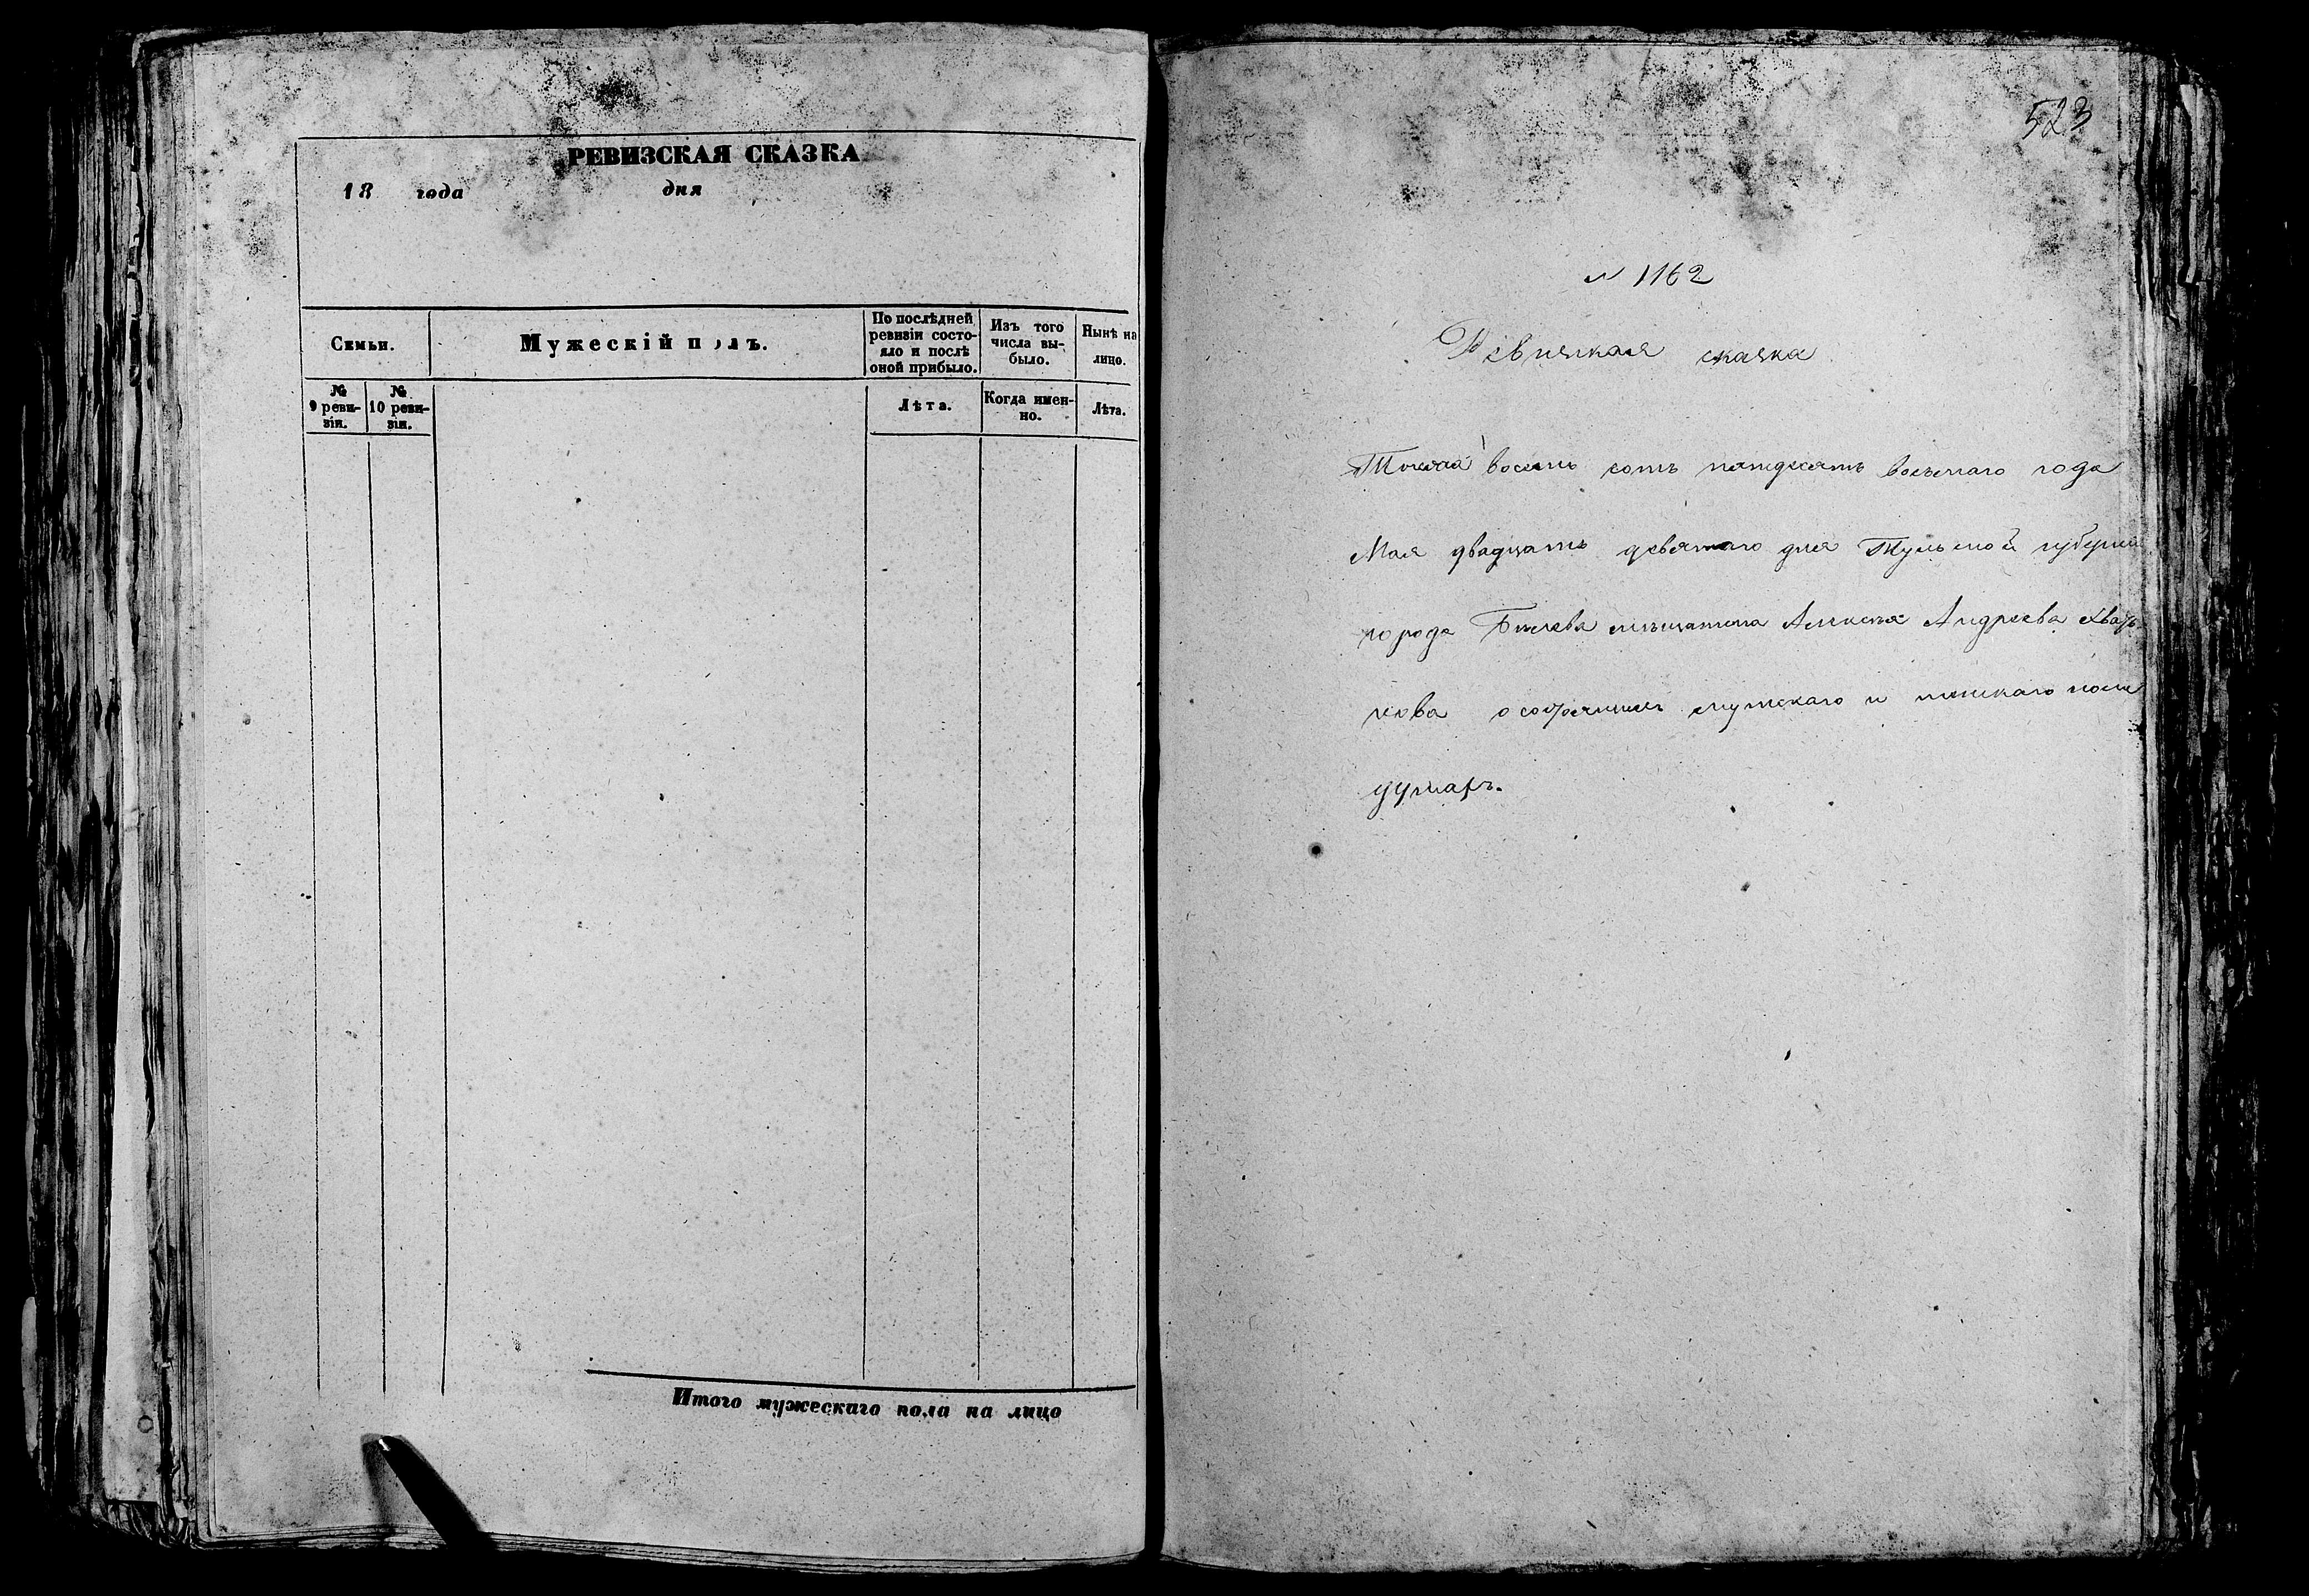 РЕВИЗСКАЯ СКАЗКА
18 года дня
Семьи.
Мужескій полъ.
По послѣдней
ревизіи состо-
яло и послѣ
оной прибыло.
Изъ того
числа вы-
было.
Нынѣ на
лицо.
№
9 реви-
зіи.
№
10 реви-
зіи.
Лѣта.
Когда имен-
но.
Лѣта.
Итого мужескаго пола на лицо
523
№ 1162
Ревизская сказка
Тысяча восемь сотъ пятдесятъ восьмаго года
Мая двадцать девятаго дня Тульской губерніи
города Бѣлева мѣщанина Алексѣя Андреева
о состоящихъ мужскаго и женскаго пола
душахъ.